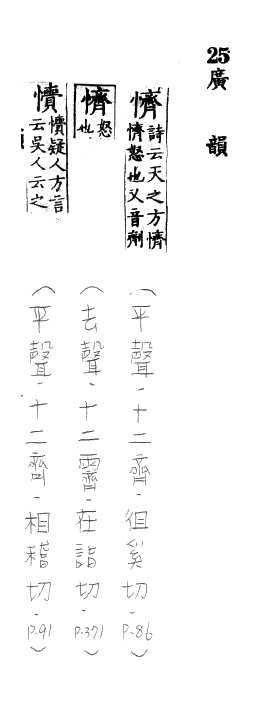 25
廣韻
懠
詩云天之方懠
懠怒也又音劑
（平聲．十二齊．徂奚切．P.86）
懠
怒
也
（去聲．十二霽．在詣切．P.371）
疑人方言
云吳人云之
（平聲．十二齊．相稽切．P.91）